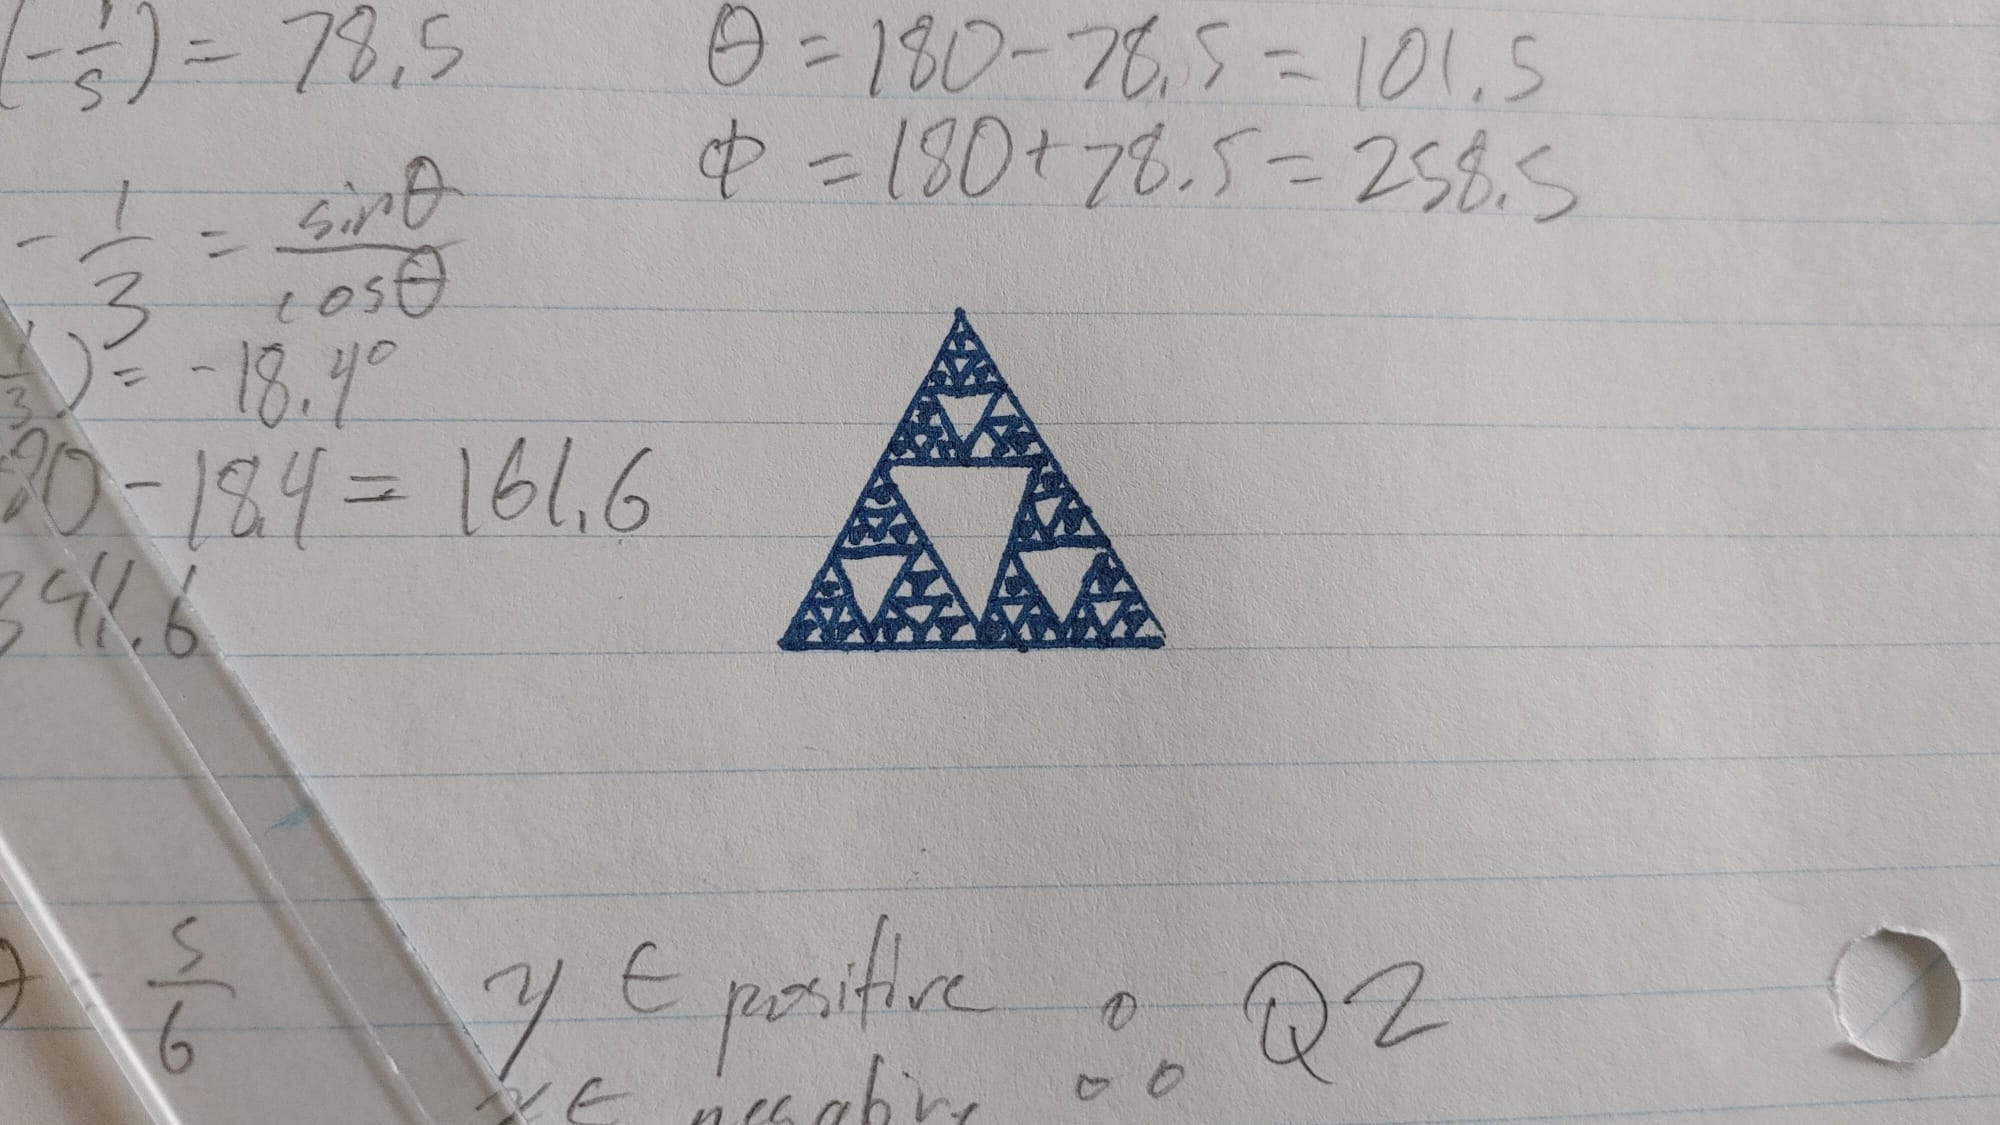 (-1/5) = 78.5
θ = 180 - 78.5 = 101.5
Φ = 180 + 78.5 = 258.5
- 1/3 = sinθ/cosθ
1/3) = -18.4°
80 - 18.4 = 161.6
341.6
- 5/6
y ∈ positive ∴ Q2
x ∈ negative